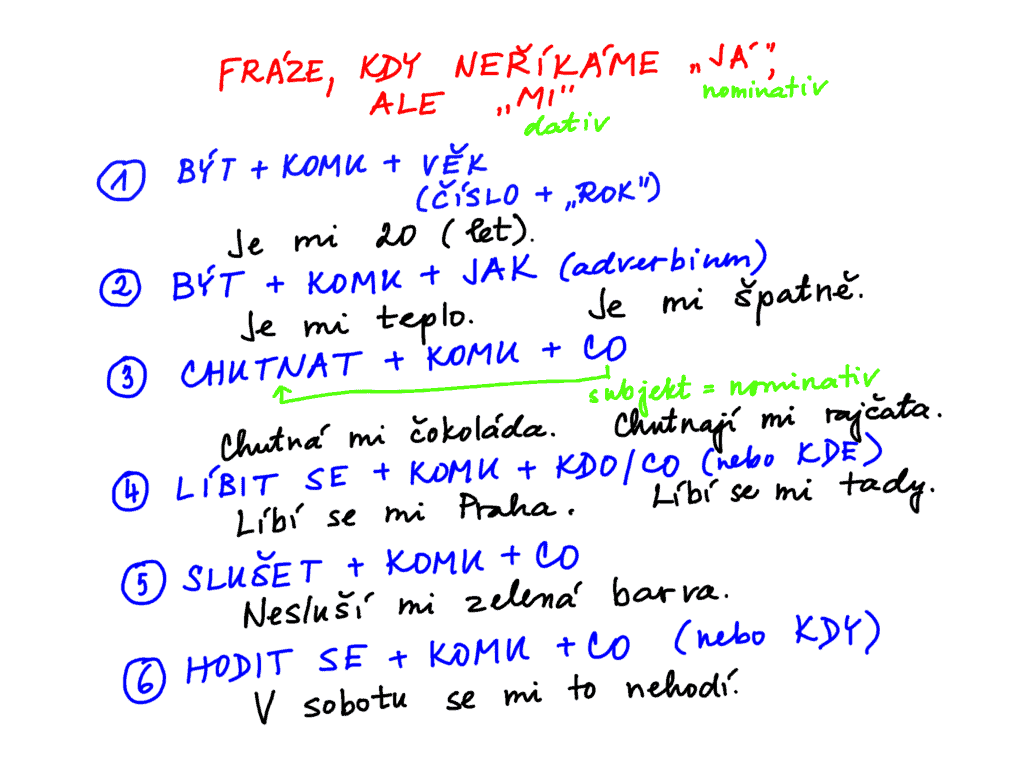 FRÁZE, KDY NEŘÍKÁME „JÁ",
nominativ
ALE „MI"
dativ
1 BÝT + KOMU + VĚK
(ČÍSLO + „ROK")
Je mi 20 (let).
2 BÝT + KOMU + JAK (adverbium)
Je mi teplo. Je mi špatně.
3 CHUTNAT + KOMU + CO
subjekt = nominativ
Chutná mi čokoláda. Chutnají mi rajčata.
4 LÍBIT SE + KOMU + KDO/CO (nebo KDE)
Líbí se mi Praha. Líbí se mi tady.
5 SLUŠET + KOMU + CO
Nesluší mi zelená barva.
6 HODIT SE + KOMU + CO (nebo KDY)
V sobotu se mi to nehodí.